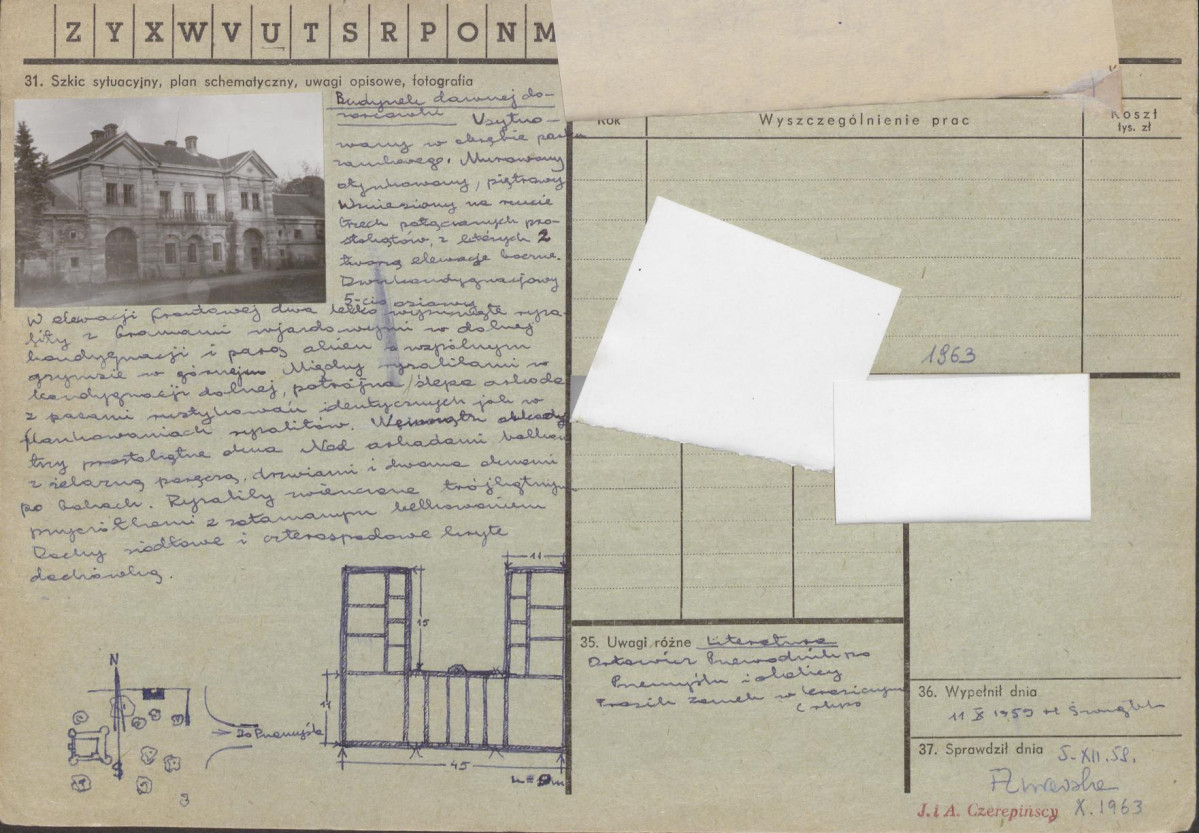 Z Y X W V U T S R P O N M
31. Szkic sytuacyjny, plan schematyczny, uwagi opisowe, fotografia
Budynek dawnej do-
Usytuo-
wany w obrębie parku
zamkowego. Murowany
otynkowany, piętrowy
Wzniesiony na rzucie
trzech połączonych pro-
stokątów, z których 2
tworzą elewacje boczne.
Dwukondygnacjowy
5-cio osiowy
W elewacji frontowej dwa lekko wysunięte ryza-
lity z bramami wjazdowymi w dolnej
kondygnacji i parą okien o wspólnym
gzymsie w górnej. Między ryzalitami w
kondygnacji dolnej, potrójna ślepa arkada
z pasami rustykowań identycznych jak w
flankowaniach ryzalitów. Wewnątrz arkady
trzy prostokątne okna Nad arkadami balkon
z żelazną poręczą, drzwiami i dwoma oknami
po bokach. Ryzality zwieńczone trójkątnym
przyczółkami z załamanym belkowaniem
Dachy siodłowe i czterospadowe kryte
dachówką.
Rok
Wyszczególnienie prac
Koszt
tys. zł
1963
11
15
14
45
N
S
Do Przemyśla
35. Uwagi różne Literatura
Orłowicz Przewodnik po
Przemyślu i okolicy
Frazik Zamek w Krasiczynie
36. Wypełnił dnia
11 X 1959
37. Sprawdził dnia 5-XII.59.
J. i A. Czerepińscy X.1963